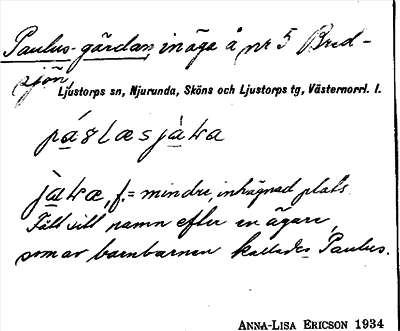 Paulus-gärdan, inäga å nr 5 Bred-
sjön,
Ljustorps sn, Njurunda, Sköns och Ljustorps tg, Västernorrl. l.
jàꞎa, f. = mindre, inhägnad plats.
Fått sitt namn efter en ägare,
som av barnbarnen kallades Paulus.
ANNA-LISA ERICSON 1934